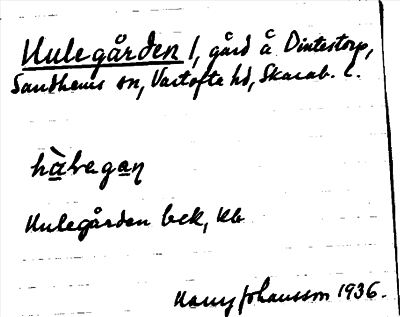 Hulegården 1, gård å Dintestorp,
Sandhems sn, Vartofte hd, Skarab. l.
Hulegården bck, kb
Harry Johansson 1936.